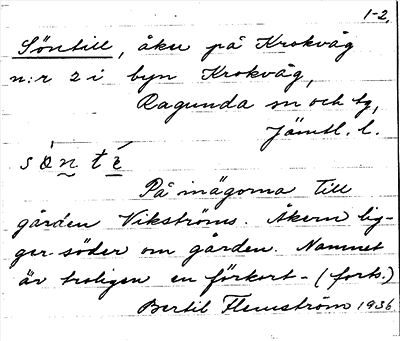 1-2,
Söntill, åker på Krokvåg
n:r 2 i byn Krokvåg,
Ragunda sn och tg,
Jämtl. l.
sö̀n̰tḛ̀
På inägorna till
gården Vikströms. Åkern lig-
ger söder om gården. Namnet
är troligen en förkort- (fork.)
Bertil Flemström 1936